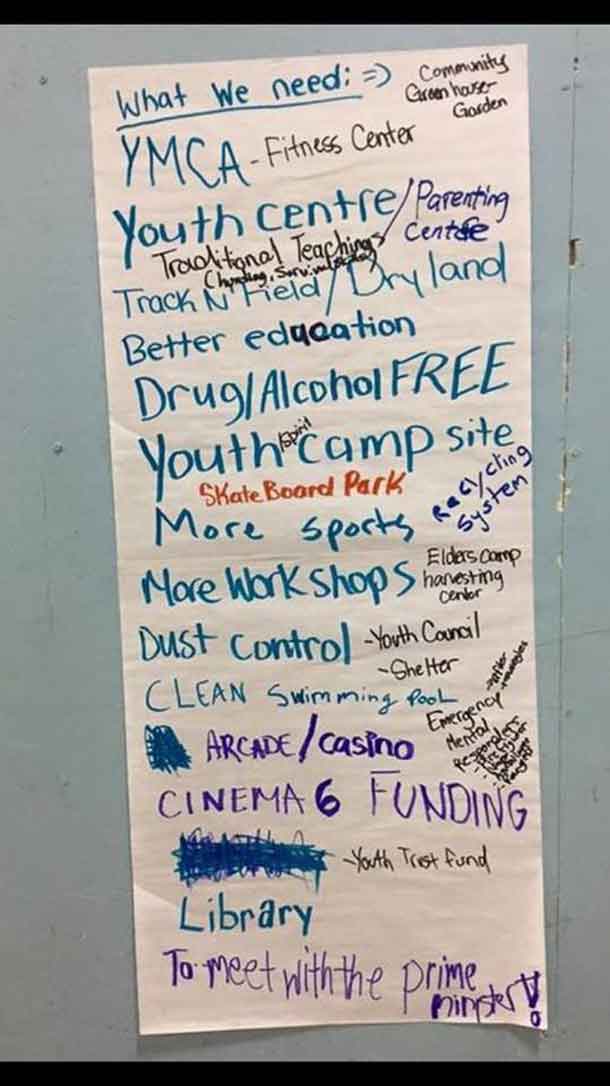 What We need: =>
Community
Green house-
Garden
YMCA - Fitness Center
Youth centre/Parenting
Centre
Traditional Teachings
Track N' Field/Dry land
Better education
Drug/Alcohol FREE
Youth camp site
Spirit
SKateBoard Park
Recycling
System
More sports
More Work shops
Elders camp
harvesting
Dust control
-Youth Council
-Shelter
CLEAN Swimming PooL
Emergency
Mental
Responders
ARCADE/casino
CINEMA 6 FUNDING
-Youth Trust fund
Library
To meet with the prime
minister!